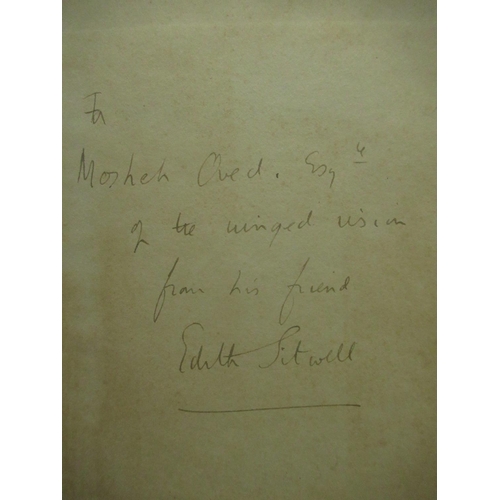 To
Mosheh Oved. Esqre
of the winged vision
from his friend
Edith Sitwell